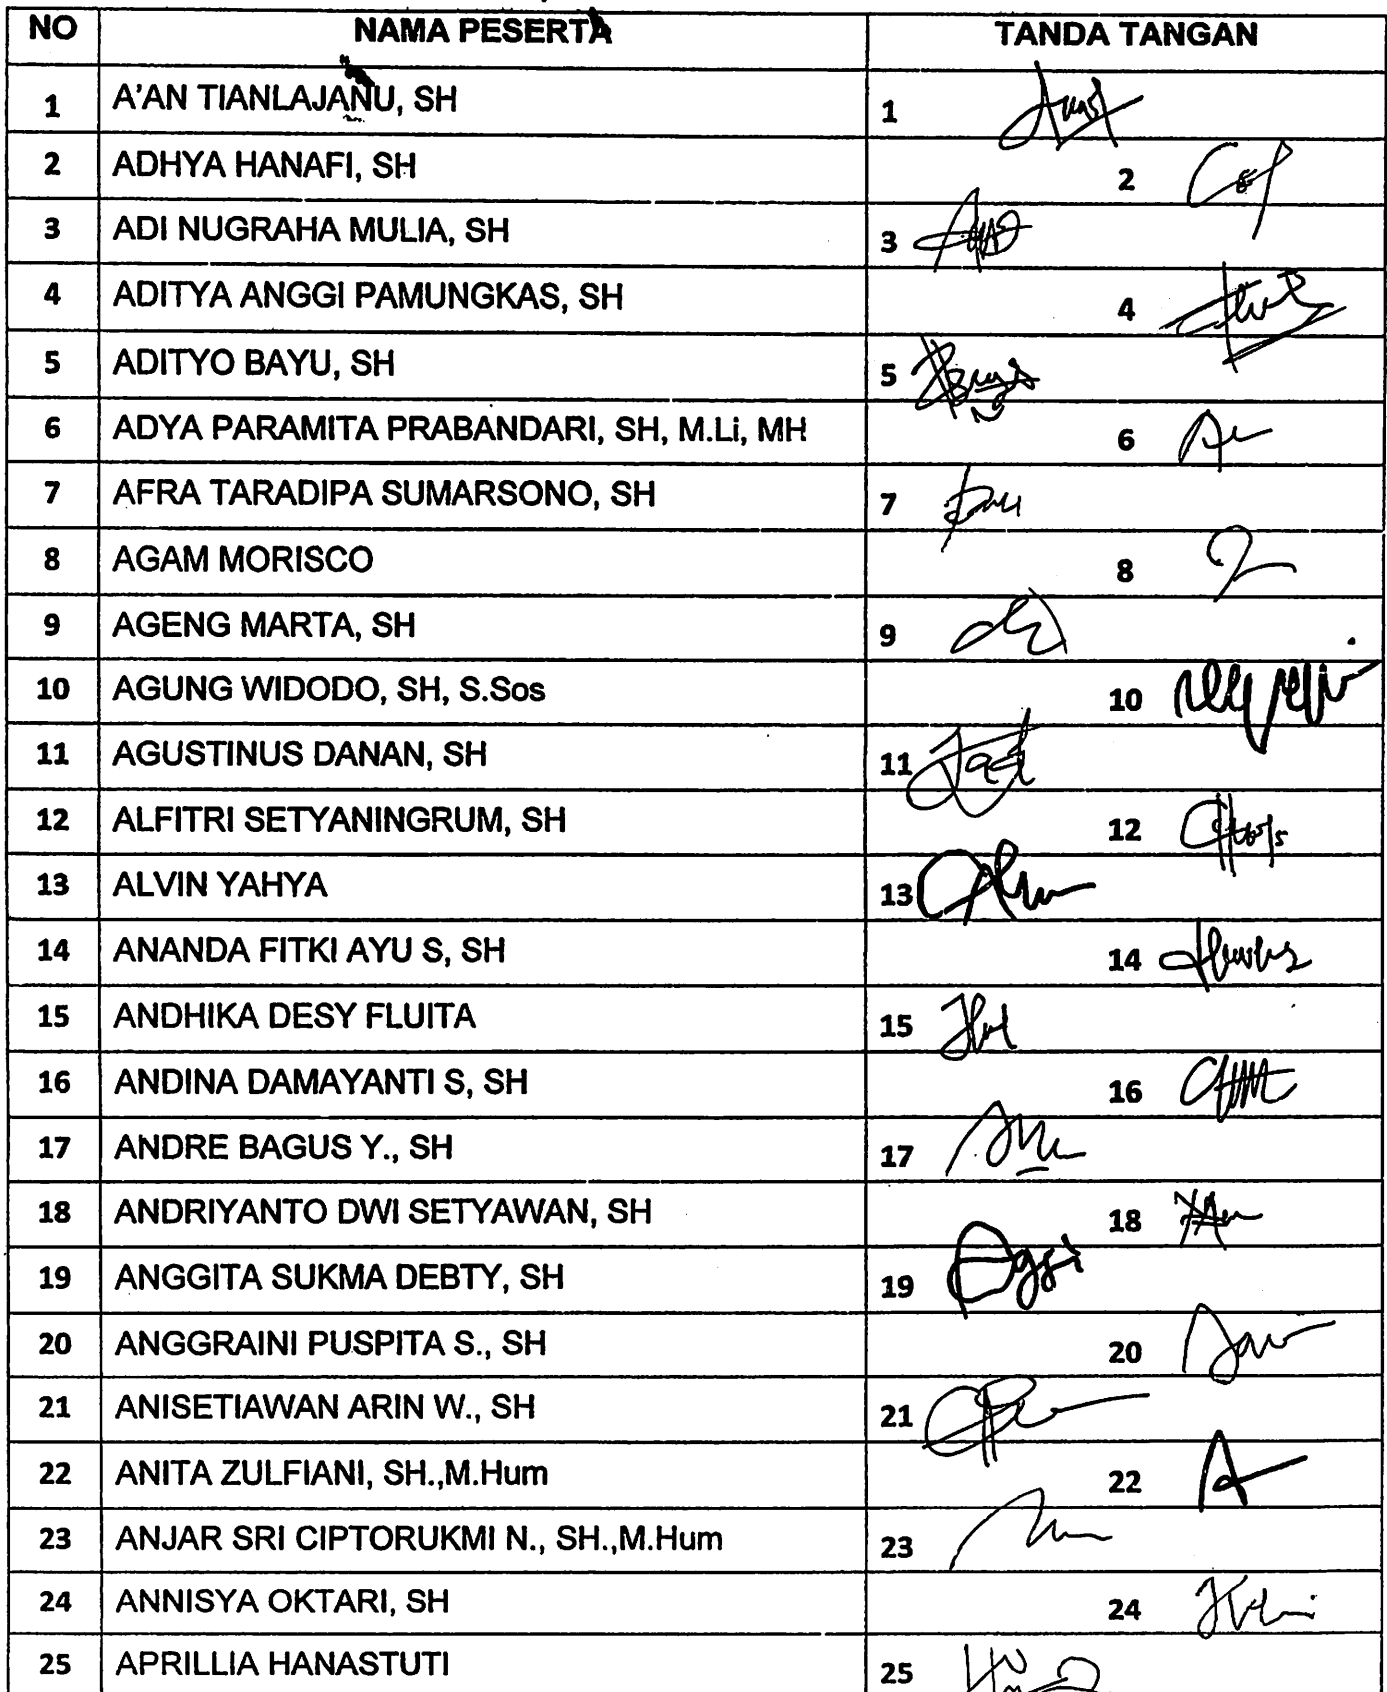 NO NAMA PESERTA TANDA TANGAN
1 A'AN TIANLAJANU, SH 1
2 ADHYA HANAFI, SH 2
3 ADI NUGRAHA MULIA, SH 3
4 ADITYA ANGGI PAMUNGKAS, SH 4
5 ADITYO BAYU, SH 5
6 ADYA PARAMITA PRABANDARI, SH, M.Li, MH 6
7 AFRA TARADIPA SUMARSONO, SH 7
8 AGAM MORISCO 8
9 AGENG MARTA, SH 9
10 AGUNG WIDODO, SH, S.Sos 10
11 AGUSTINUS DANAN, SH 11
12 ALFITRI SETYANINGRUM, SH 12
13 ALVIN YAHYA 13
14 ANANDA FITKI AYU S, SH 14
15 ANDHIKA DESY FLUITA 15
16 ANDINA DAMAYANTI S, SH 16
17 ANDRE BAGUS Y., SH 17
18 ANDRIYANTO DWI SETYAWAN, SH 18
19 ANGGITA SUKMA DEBTY, SH 19
20 ANGGRAINI PUSPITA S., SH 20
21 ANISETIAWAN ARIN W., SH 21
22 ANITA ZULFIANI, SH.,M.Hum 22
23 ANJAR SRI CIPTORUKMI N., SH.,M.Hum 23
24 ANNISYA OKTARI, SH 24
25 APRILLIA HANASTUTI 25